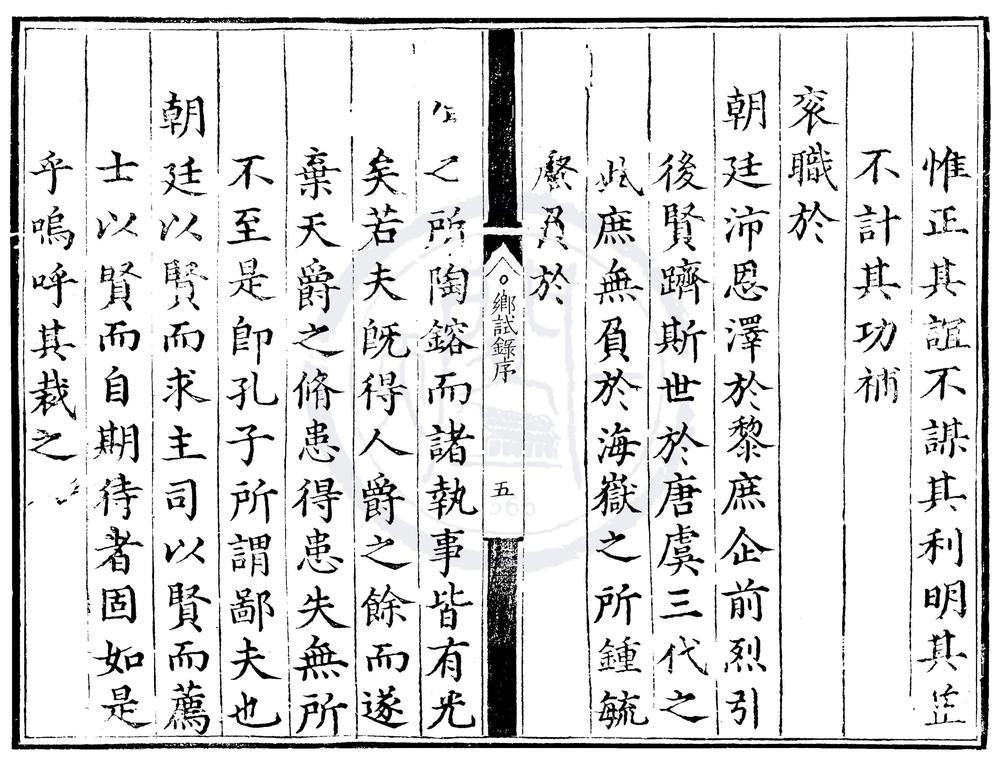 惟正其誼不謀其利明其
不計其功補
袞職於
朝廷沛恩澤於黎庶企前烈引
後賢躋斯世於唐虞三代之
庶無負於海嶽之所鍾毓
於
鄉試錄序
五
之所陶鎔而諸執事皆有光
矣若夫旣得人爵之餘而遂
棄天爵之脩患得患失無所
不至是卽孔子所謂鄙夫也
朝廷以賢而求主司以賢而薦
士以賢而自期待者固如是
乎嗚呼其裁之